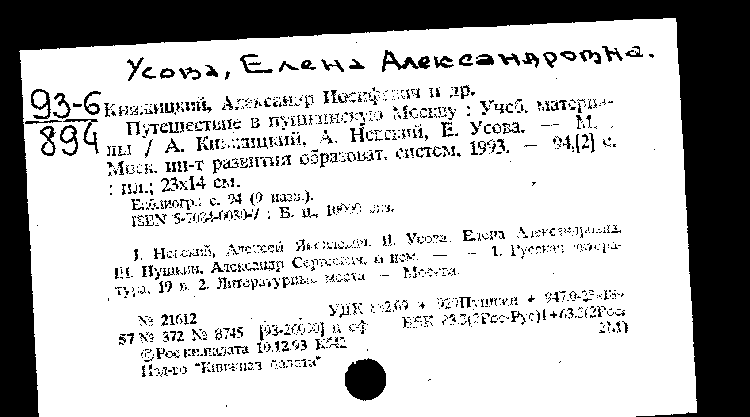 Усова, Елена Александровна.
93-6
894
Княжицкий, Александр Иосифович и др.
Путешествие в пушкинскую Москву : Учеб. материа-
лы / А. Княжицкий, А. Невский, Е. Усова. — М. :
Моск. ин-т развития образоват. систем, 1993. — 94,[2] с.
: ил.; 23x14 см.
Библиогр.: с. 94 (9 назв.).
ISBN 5-7084-0030-7 : Б. ц., 10000 экз.
I. Невский, Алексей Яковлевич. II. Усова, Елена Александровна.
III. Пушкин, Александр Сергеевич, о нем. — — 1. Русская литера-
тура, 19 в. 2. Литературные места — Москва.
№ 21612
57 № 372 № 8745 [93-20000] п сф
©Рос кн.палата 10.12.93
Изд-во "Книжная палата"
УДК + 929Пушкин +
ББК
2М)